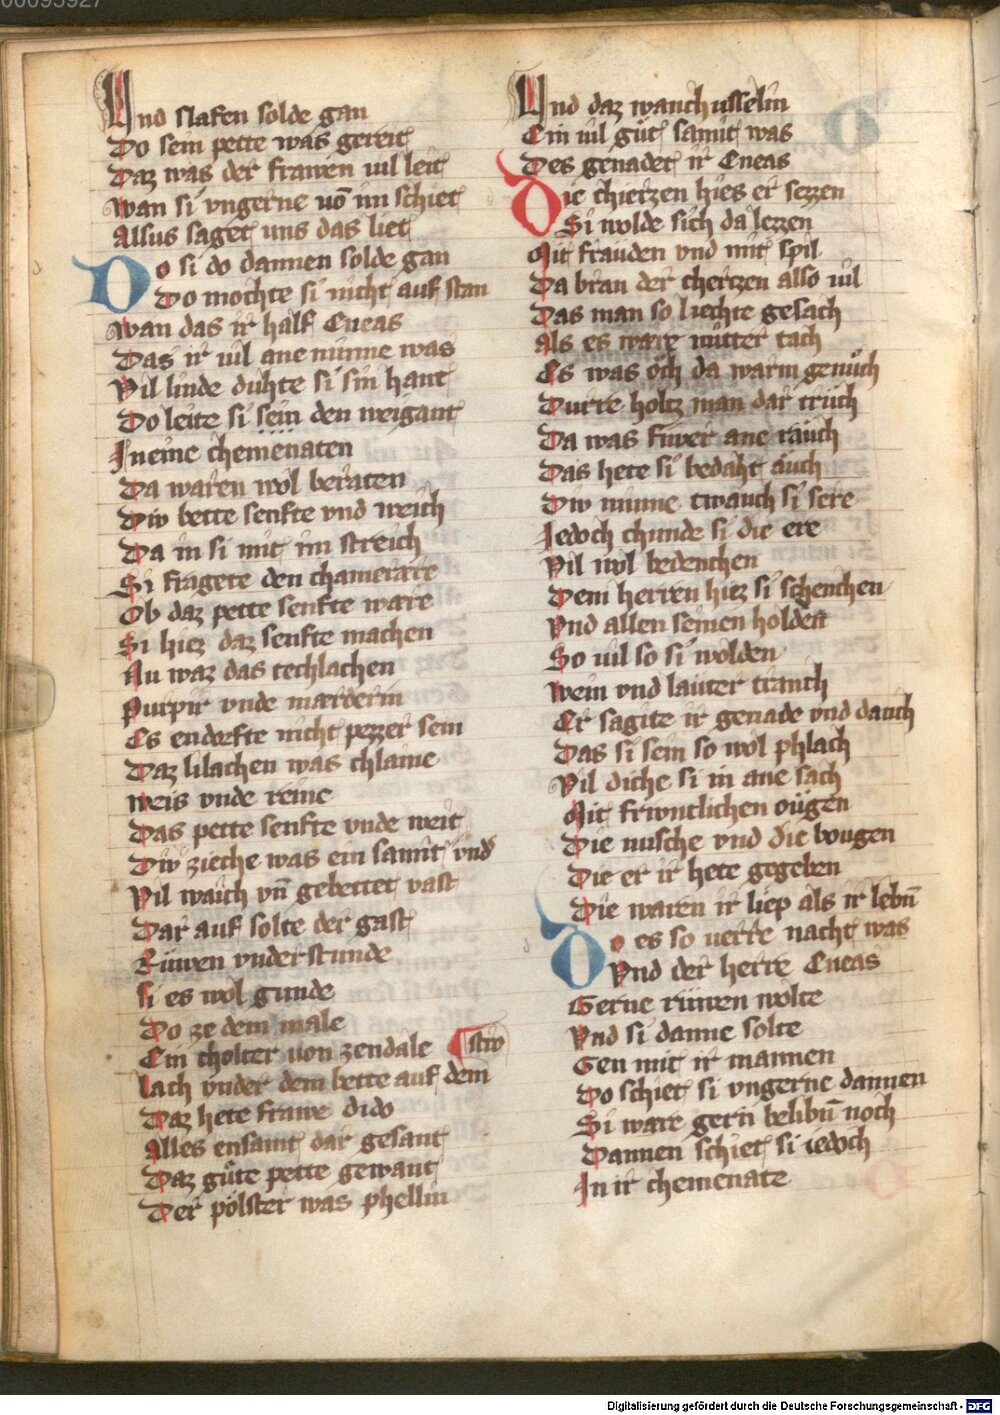 Vnd slafen solde gan
Do sein pette was gereit
Daz was der frawen uil leit
wan si vngerne uō im schiet
Alsus saget uns das liet
Do si do dannen solde gan
Do mochte si nicht auf stan
wan das ir half Eneas
Das ir uil ane minne was
Vil linde duhte si sin hant
Do leite si sein den weigant
In eine chemenaten
Da waren wol beraten
Diw bette senfte vnd weich
Da in si mit im streich
Si fragete den chamerare
Ob daz pette senfte ware
Si hiez daz senfte machen
Nu waz das techlachen
purpir vnde marderin
Es endorfte nicht pezzer sein
Daz lilachen was chlaine
weis vnde reine
Das pette senfte vnde weit
Diw zieche was ein samit vnd
Vil waich vn̄ gebettet vast
Dar auf solte der gast
Rüwen vnderstunde
si es wol gunde
Do ze dem male
Ein cholter uon zendale
stro
lach vnder dem bette auf dem
Daz hete frawe dido
Alles ensamt dar gesant
Daz gůte pette gewant
Der pölster was phellin
Vnd daz wanchusselin
Ein uil gůt samit was
Des genadet ir Eneas
Die chierzen hies er sezzen
Si wolde sich da lezzen
Mit frauden vnd mit spil
Da bran der chertzen also uil
Das man so liechte gesach
Als es ware mitter tach
Es was öch da warm genůch
Durre holtz man dar trůch
Da was fiwer ane rauch
Das hete si bedaht auch
Diw minne twauch si sere
Iedoch chunde si die ere
Vil wol bedenchen
Dem herren hiez si schenchen
Vnd allen seinen holden
So uil so si wolden
wein vnd lauter tranch
Er sagite ir genade vnd danch
Das si sein so wol phlach
Vil diche si in ane sach
Mit friwntlichen ougen
Die nusche vnd die bougen
Die er ir hete gegeben
Die waren ir liep als ir lebn̄
Do es so uerre nacht was
Vnd der herre Eneas
Gerne rüwen wolte
Vnd si danne solte
Gen mit ir mannen
Do schiet si vngerne dannen
Si ware gern belibn̄ noch
Dannen schiet si iedoch
In ir chemenate
Digitalisierung gefördert durch die Deutsche Forschungsgemeinschaft - DFG